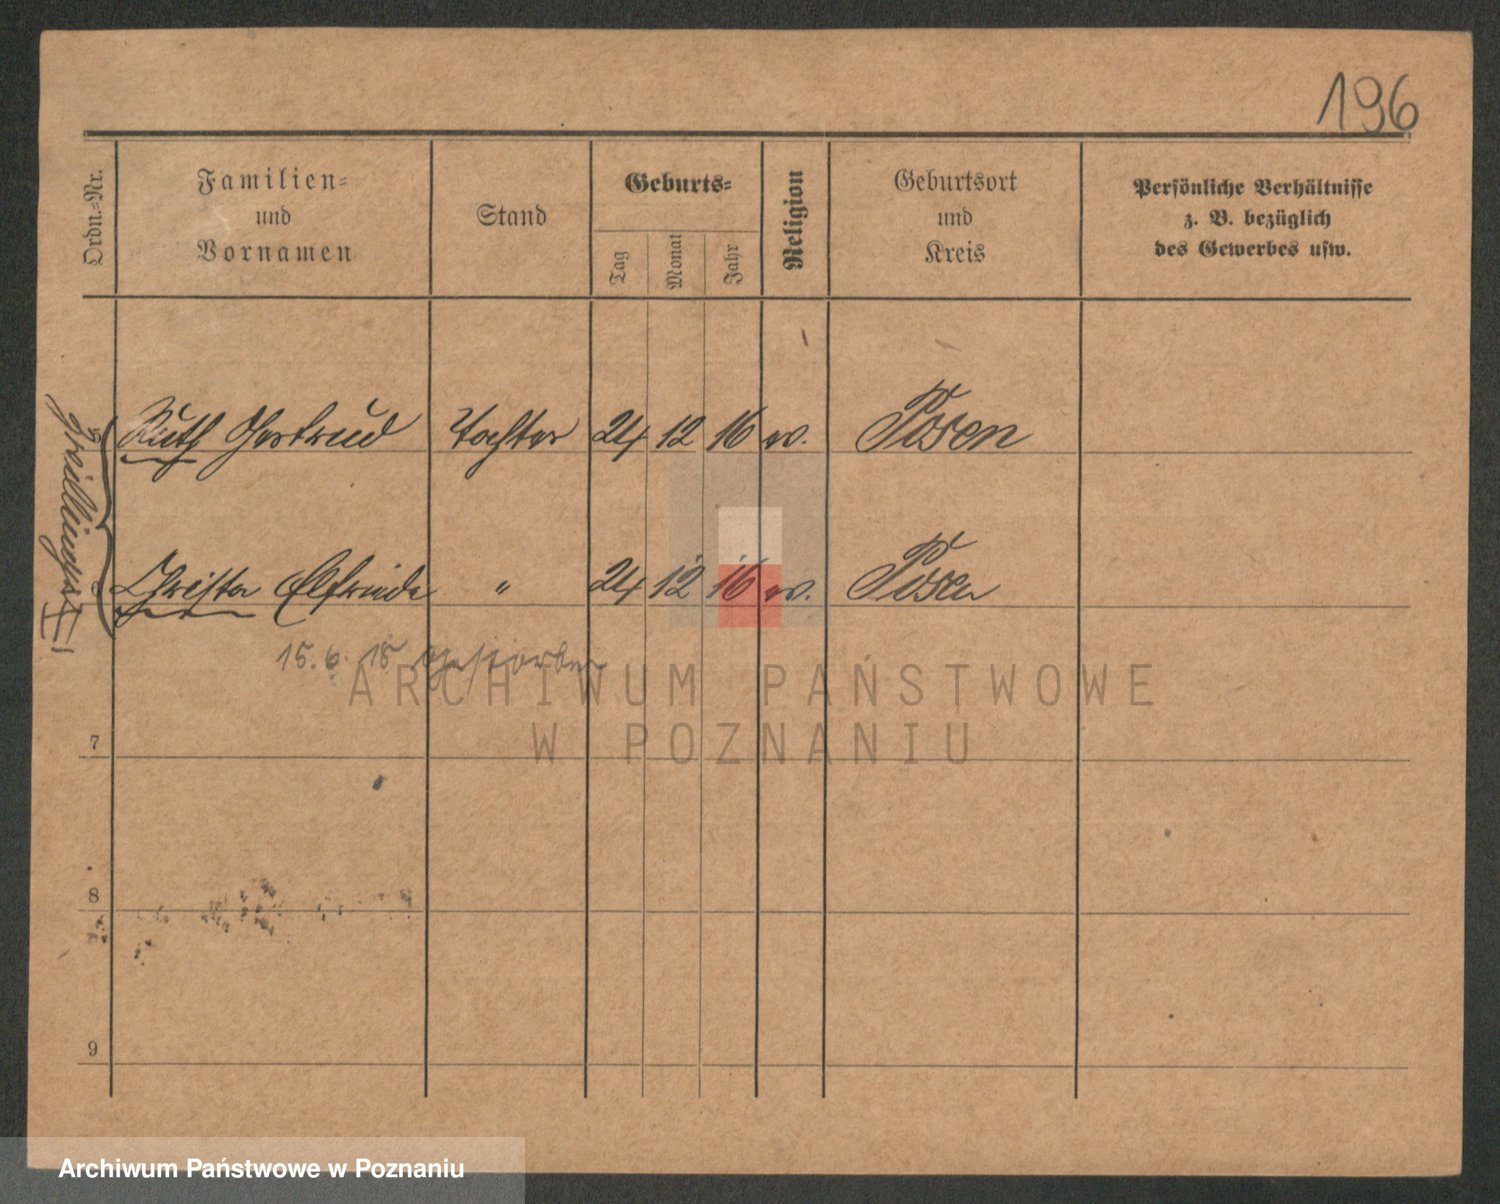 196
Ordn.-Nr.
Familien-
und
Vornamen
Stand
Geburts-
Tag
Monat
Jahr
Religion
Geburtsort
und
Kreis
Persönliche Verhältnisse
z. B. bezüglich
des Gewerbes usw.
5 Ruth Gertrud Tochter 24 12 16 ev. Posen
6 Christa Elfriede " 24 12 16 ev. Posen
15. 6. 18 gestorben
7
8
9
ARCHIWUM PAŃSTWOWE
W POZNANIU
Archiwum Państwowe w Poznaniu